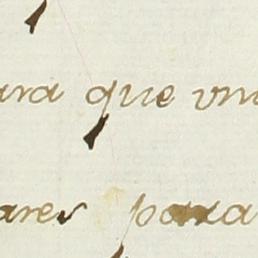 ara que vn
ares para